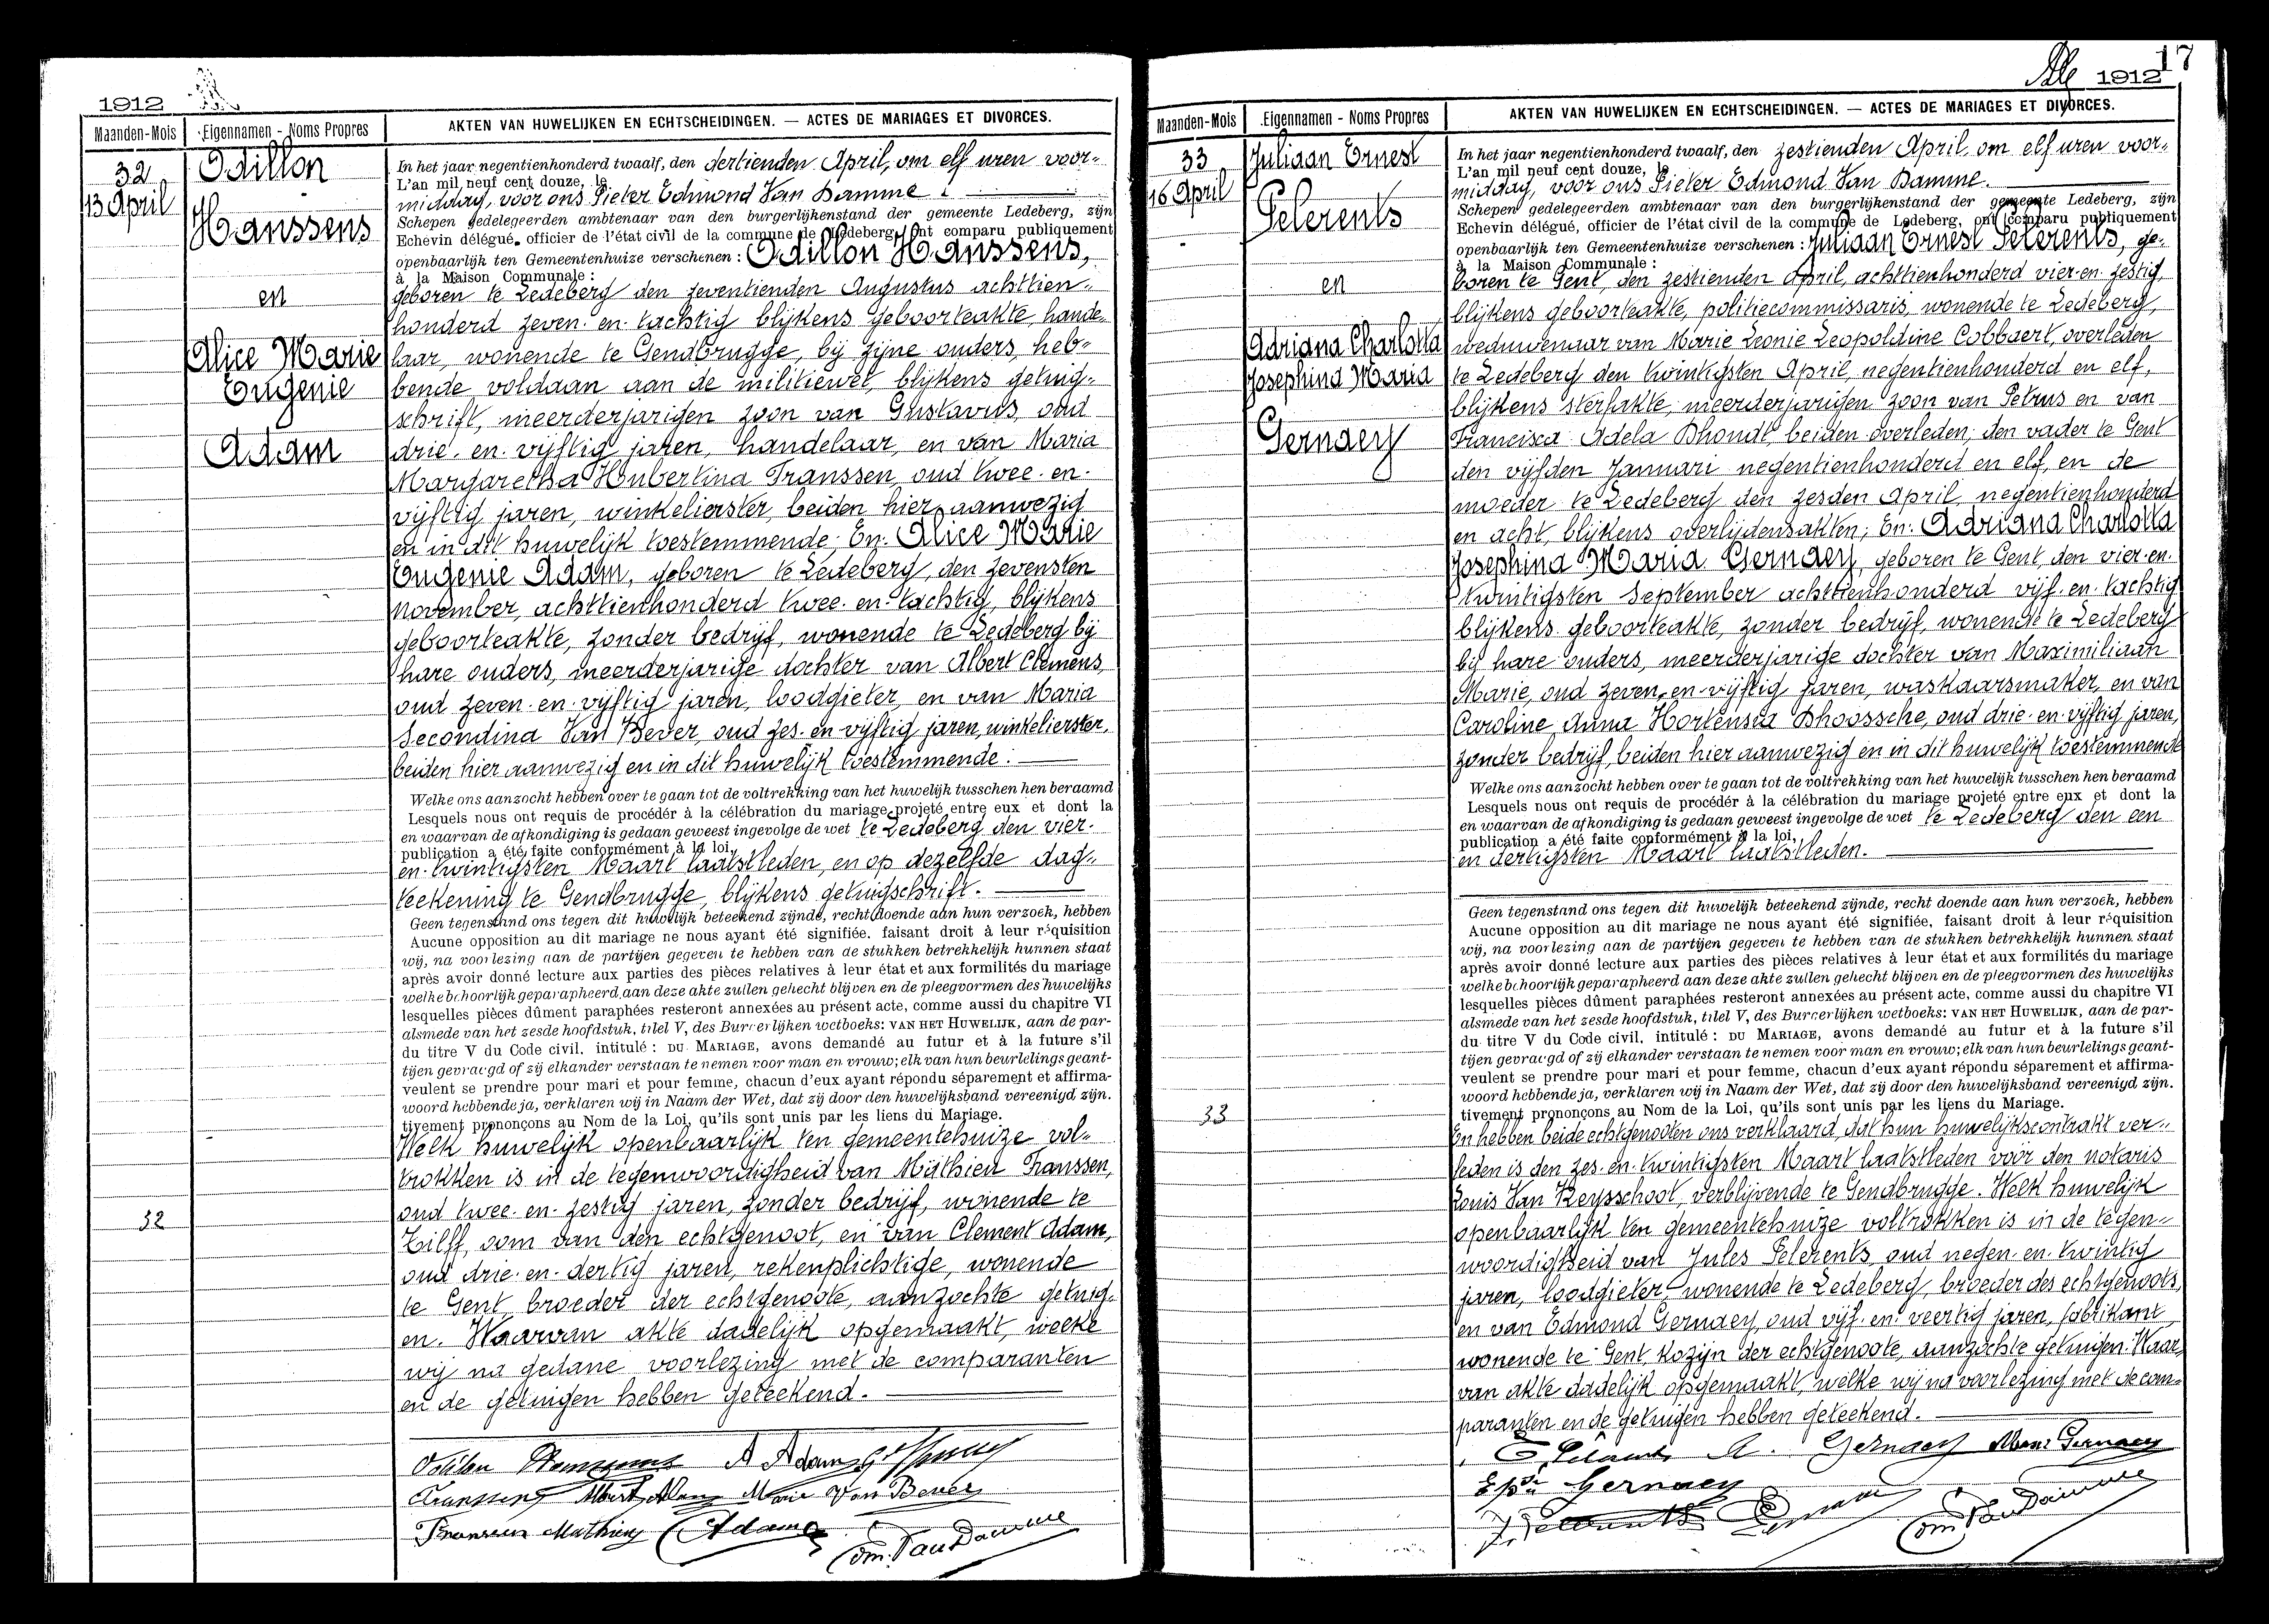 1912
Maanden-Mois
Eigennamen - Noms Propres
AKTEN VAN HUWELIJKEN EN ECHTSCHEIDINGEN. — ACTES DE MARIAGES ET DIVORCES.
32
13 April
Odillon
Hanssens
en
Alice Marie
Eugenie
Adam
32
In het jaar negentienhonderd twaalf, den dertienden April, om elf uren voor-
L'an mil neuf cent douze, le
middag, voor ons Pieter Edmond Van Damme
Schepen gedelegeerden ambtenaar van den burgerlijkenstand der gemeente Ledeberg, zijn
Echevin délégué, officier de l'état civil de la commune de Ledeberg, ont comparu publiquement
openbaarlijk ten Gemeentenhuize verschenen : Odillon Hanssens,
à la Maison Communale :
geboren te Ledeberg den zeventienden Augustus achttien-
honderd zeven-en-tachtig blijkens geboorteakte, hande-
laar, wonende te Gendbrugge, bij zijne ouders, heb-
bende voldaan aan de militiewet, blijkens getuig-
schrift, meerderjarigen zoon van Gustavus, oud
drie-en-vijftig jaren, handelaar, en van Maria
Margaretha Hubertina Franssen, oud twee-en-
vijftig jaren, winkelierster, beiden hier aanwezig
en in dit huwelijk toestemmende; En: Alice Marie
Eugenie Adam, geboren te Ledeberg, den zevensten
november, achttienhonderd twee-en-tachtig, blijkens
geboorteakte, zonder bedrijf, wonende te Ledeberg bij
hare ouders, meerderjarige dochter van Albert Clemens,
oud zeven-en-vijftig jaren, loodgieter, en van Maria
Secondina Van Bever, oud zes-en-vijftig jaren, winkelierster,
beiden hier aanwezig en in dit huwelijk toestemmende.
Welke ons aanzocht hebben over te gaan tot de voltrekking van het huwelijk tusschen hen beraamd
Lesquels nous ont requis de procéder à la célébration du mariage projeté entre eux et dont la
en waarvan de afkondiging is gedaan geweest ingevolge de wet te Ledeberg den vier-
publication a été faite conformément à la loi,
en-twintigsten Maart laatstleden, en op dezelfde dag-
teekening te Gendbrugge, blijkens getuigschrift.
Geen tegenstand ons tegen dit huwelijk beteekend zijnde, recht doende aan hun verzoek, hebben
Aucune opposition au dit mariage ne nous ayant été signifiée, faisant droit à leur réquisition
wij, na voorlezing aan de partijen gegeven te hebben van de stukken betrekkelijk hunnen staat
après avoir donné lecture aux parties des pièces relatives à leur état et aux formilités du mariage
welke behoorlijk geparapheerd, aan deze akte zullen gehecht blijven en de pleegvormen des huwelijks
lesquelles pièces dûment paraphées resteront annexées au présent acte, comme aussi du chapitre VI
alsmede van het zesde hoofdstuk, titel V, des Burgerlijken wetboeks: VAN HET HUWELIJK, aan de par-
du titre V du Code civil, intitulé : DU MARIAGE, avons demandé au futur et à la future s'il
tijen gevraagd of zij elkander verstaan te nemen voor man en vrouw; elk van hun beurtelings geant-
veulent se prendre pour mari et pour femme, chacun d'eux ayant répondu séparement et affirma-
woord hebbende ja, verklaren wij in Naam der Wet, dat zij door den huwelijksband vereenigd zijn.
tivement prononçons au Nom de la Loi, qu'ils sont unis par les liens du Mariage.
Welk huwelijk openbaarlijk ten gemeentehuize vol-
trokken is in de tegenwoordigheid van Mathieu Franssen,
oud twee-en-zestig jaren, zonder bedrijf, wonende te
Tilff, oom van den echtgenoot, en van Clement Adam,
oud drie-en-dertig jaren, rekenplichtige, wonende
te Gent, broeder der echtgenoote, aanzochte getuig-
en. Waarvan akte dadelijk opgemaakt, welke
wij na gedane voorlezing met de comparanten
en de getuigen hebben geteekend.
Odilon Hanssens A Adam
Franssen Albert Adam Marie Van Bever
Franssen Mathieu C Adam Edm. Van Damme
17
1912
Maanden-Mois
Eigennamen - Noms Propres
AKTEN VAN HUWELIJKEN EN ECHTSCHEIDINGEN. — ACTES DE MARIAGES ET DIVORCES.
33
16 April
Juliaan Ernest
Pelerents
en
Adriana Charlotta
Josephina Maria
Gernaey
33
In het jaar negentienhonderd twaalf, den zestienden April, om elf uren voor-
L'an mil neuf cent douze, le
middag, voor ons Pieter Edmond Van Damme.
Schepen gedelegeerden ambtenaar van den burgerlijkenstand der gemeente Ledeberg, zijn
Echevin délégué, officier de l'état civil de la commune de Ledeberg, ont comparu publiquement
openbaarlijk ten Gemeentenhuize verschenen : Juliaan Ernest Pelerents, ge-
à la Maison Communale :
boren te Gent, den zestienden April, achttienhonderd vier-en-zestig,
blijkens geboorteakte, politiecommissaris, wonende te Ledeberg,
weduwenaar van Marie Leonie Leopoldine Cobbaert, overleden
te Ledeberg den twintigsten April, negentienhonderd en elf,
blijkens sterfakte, meerderjarigen zoon van Petrus en van
Francisca Adela Dhondt, beiden overleden; den vader te Gent
den vijfden Januari negentienhonderd en elf, en de
moeder te Ledeberg den zesden April negentienhonderd
en acht, blijkens overlijdensakten; En: Adriana Charlotta
Josephina Maria Gernaey, geboren te Gent, den vier-en-
twintigsten September achttienhonderd vijf-en-tachtig
blijkens geboorteakte, zonder bedrijf, wonende te Ledeberg
bij hare ouders, meerderjarige dochter van Maximiliaan
Marie, oud zeven-en-vijftig jaren, waskaarsmaker, en van
Caroline Anna Hortensia Dhoossche, oud drie-en-vijftig jaren,
zonder bedrijf, beiden hier aanwezig en in dit huwelijk toestemmende
Welke ons aanzocht hebben over te gaan tot de voltrekking van het huwelijk tusschen hen beraamd
Lesquels nous ont requis de procéder à la célébration du mariage projeté entre eux et dont la
en waarvan de afkondiging is gedaan geweest ingevolge de wet te Ledeberg den een
publication a été faite conformément à la loi,
en dertigsten Maart laatstleden.
Geen tegenstand ons tegen dit huwelijk beteekend zijnde, recht doende aan hun verzoek, hebben
Aucune opposition au dit mariage ne nous ayant été signifiée, faisant droit à leur réquisition
wij, na voorlezing aan de partijen gegeven te hebben van de stukken betrekkelijk hunnen staat
après avoir donné lecture aux parties des pièces relatives à leur état et aux formilités du mariage
welke behoorlijk geparapheerd aan deze akte zullen gehecht blijven en de pleegvormen des huwelijks
lesquelles pièces dûment paraphées resteront annexées au présent acte, comme aussi du chapitre VI
alsmede van het zesde hoofdstuk, titel V, des Burgerlijken wetboeks: VAN HET HUWELIJK, aan de par-
du titre V du Code civil, intitulé : DU MARIAGE, avons demandé au futur et à la future s'il
tijen gevraagd of zij elkander verstaan te nemen voor man en vrouw; elk van hun beurtelings geant-
veulent se prendre pour mari et pour femme, chacun d'eux ayant répondu séparement et affirma-
woord hebbende ja, verklaren wij in Naam der Wet, dat zij door den huwelijksband vereenigd zijn.
tivement prononçons au Nom de la Loi, qu'ils sont unis par les liens du Mariage.
En hebben beide echtgenooten ons verklaard, dat hun huwelijkscontrakt ver-
leden is den zes-en-twintigsten Maart laatstleden voor den notaris
Louis Van Reysschoot, verblijvende te Gendbrugge. Welk huwelijk
openbaarlijk ten gemeentehuize voltrokken is in de tegen-
woordigheid van Jules Pelerents, oud negen-en-twintig
jaren, loodgieter, wonende te Ledeberg, broeder des echtgenoots,
en van Edmond Gernaey, oud vijf-en-veertig jaren, fabrikant,
wonende te Gent, kozijn der echtgenoote, aanzochte getuigen. Waar-
van akte dadelijk opgemaakt, welke wij na voorlezing met de com-
paranten en de getuigen hebben geteekend.
E. Pelerents A. Gernaey Max Gernaey
Gernaey
J. Pelerents Edm. Van Damme